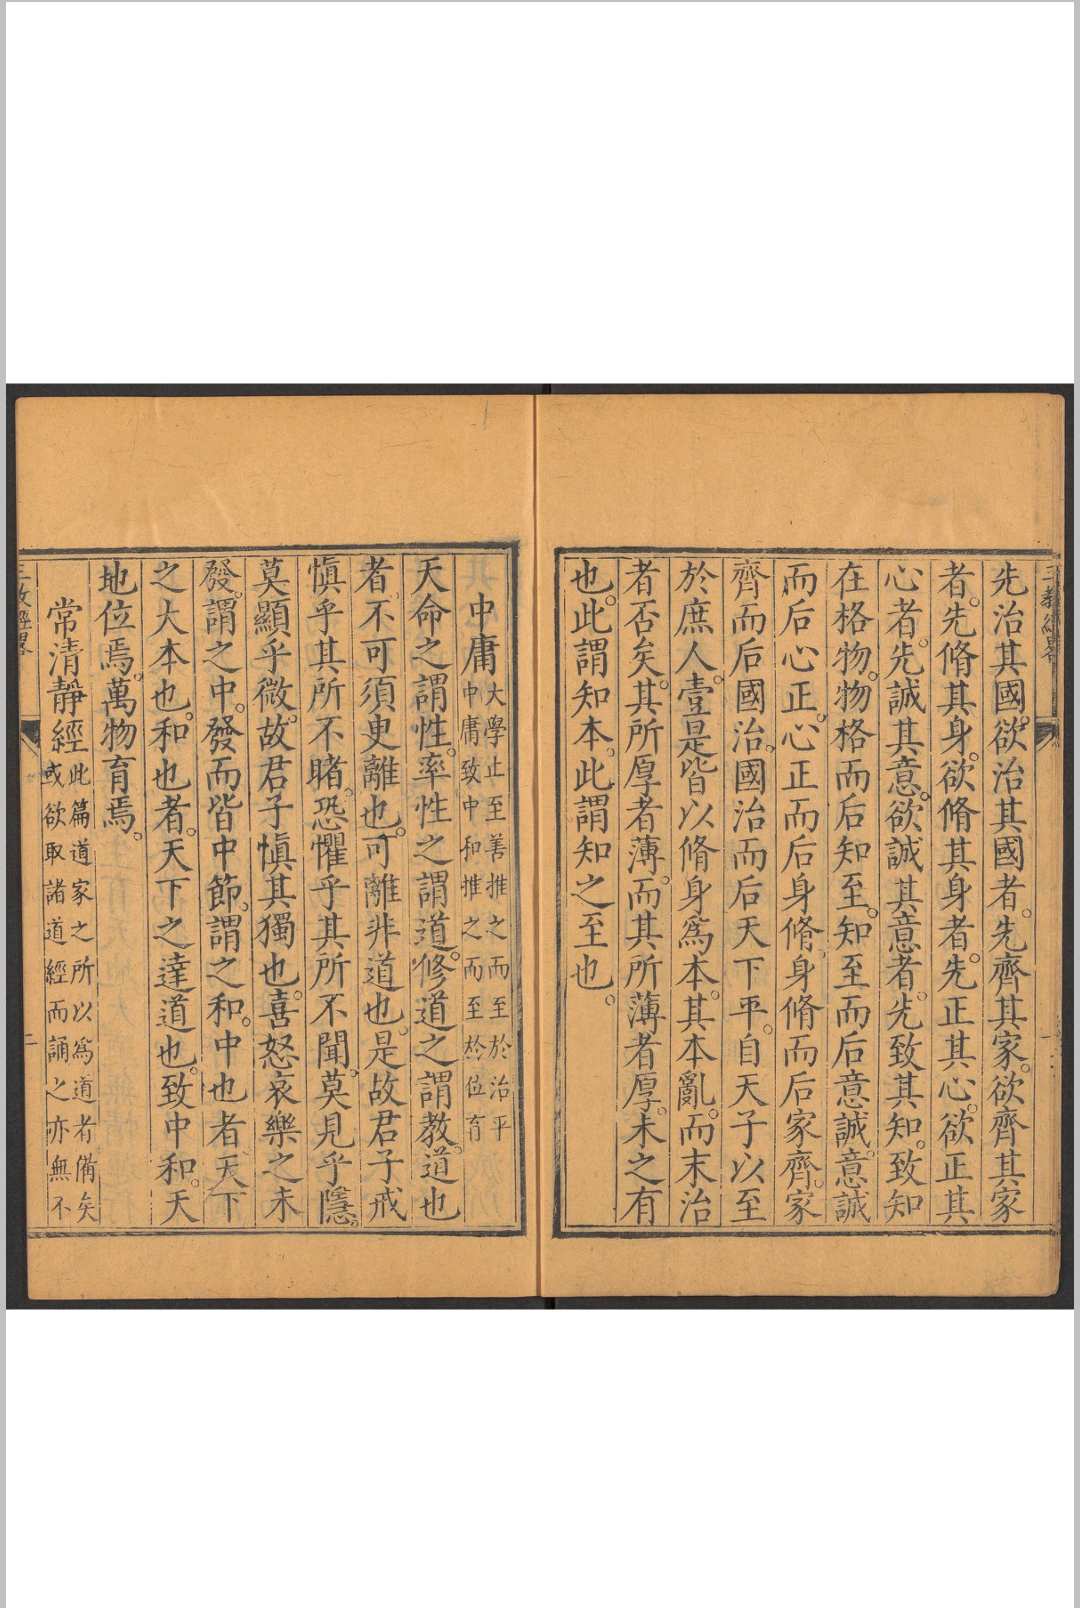 三教經畧
先治其國。欲治其國者。先齊其家。欲齊其家
者。先脩其身。欲脩其身者。先正其心。欲正其
心者。先誠其意。欲誠其意者。先致其知。致知
在格物。物格而后知至。知至而后意誠。意誠
而后心正。心正而后身脩。身脩而后家齊。家
齊而后國治。國治而后天下平。自天子以至
於庶人。壹是皆以脩身爲本。其本亂。而末治
者否矣。其所厚者薄。而其所薄者厚。未之有
也。此謂知本。此謂知之至也。
中庸
大學止至善推之而至於治平
中庸致中和推之而至於位育
天命之謂性。率性之謂道。修道之謂教。道也
者。不可須臾離也。可離非道也。是故君子戒
慎乎其所不睹。恐懼乎其所不聞。莫見乎隱。
莫顯乎微。故君子慎其獨也。喜怒哀樂之未
發。謂之中。發而皆中節。謂之和。中也者。天下
之大本也。和也者。天下之達道也。致中和。天
地位焉。萬物育焉。
常清靜經
此篇道家之所以爲道者備矣
或欲取諸道經而誦之亦無不
三教經畧
二